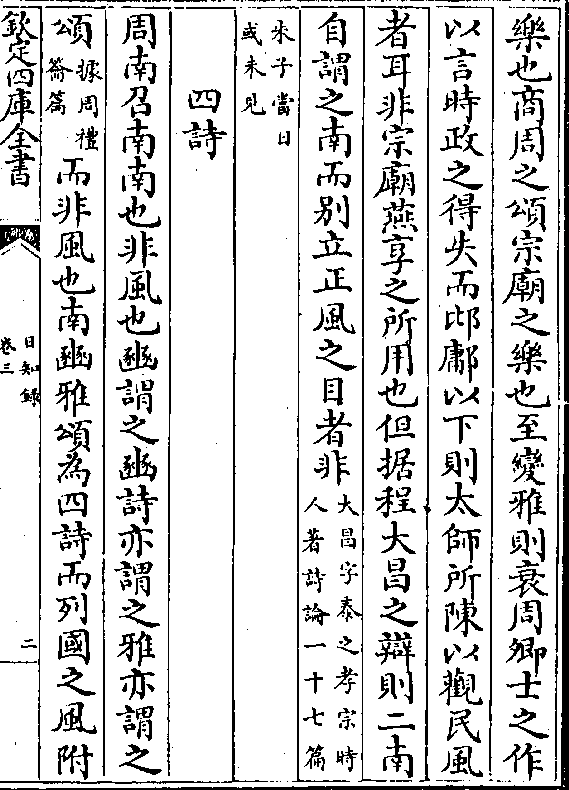 樂也商周之頌宗廟之樂也至變雅則衰周卿士之作
以言時政之得失而邶鄘以下則太師所陳以觀民風
者耳非宗廟燕享之所用也但据程大昌之辯則二南
自謂之南而别立正風之目者非大昌字泰之孝宗時
人著詩論一十七篇
朱子當日
或未見
四詩
周南召南南也非風也豳謂之豳詩亦謂之雅亦謂之
頌據周禮
籥篇而非風也南豳雅頌為四詩而列國之風附
欽定四庫全書
日知錄
卷三
二